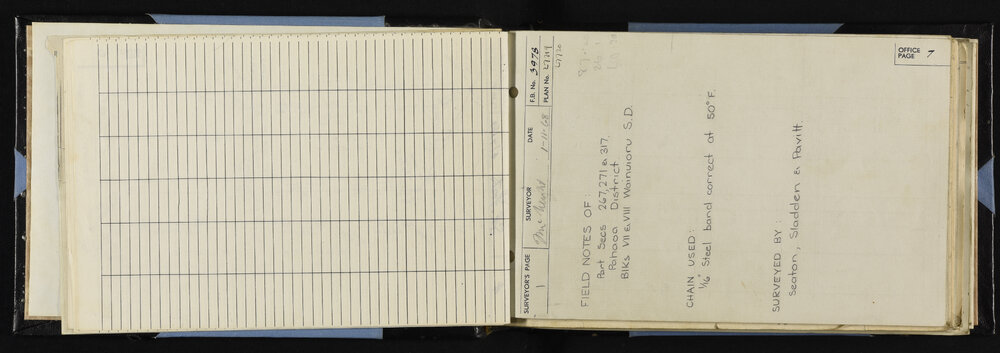 OFFICE PAGE 7
SURVEYOR'S PAGE 1
SURVEYOR
DATE 1-11-68
F.B. No. 3978
PLAN No. 27719
27720
FIELD NOTES OF:
Part Secs 267, 271 & 317.
Pahaoa District
Blks VII & VIII Wainuioru S.D.
CHAIN USED:
1/16" Steel band correct at 50° F.
SURVEYED BY:
Seaton, Sladden & Pavitt.